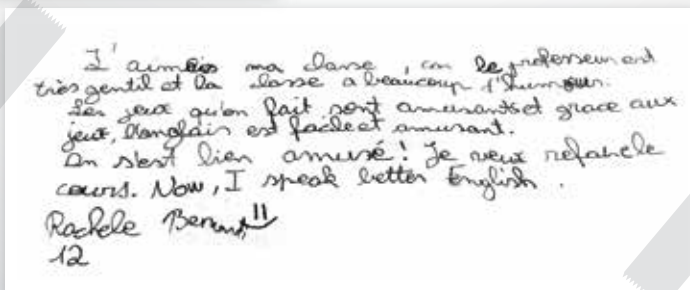 J'aimais ma classe, car le professeur est
très gentil et la classe a beaucoup d'humour.
Les jeux qu'on fait sont amusants et grace aux
jeux, l'anglais est facile et amusant.
On s'est bien amusé! Je veux refaire le
cours. Now, I speak better English.
Rachele
12